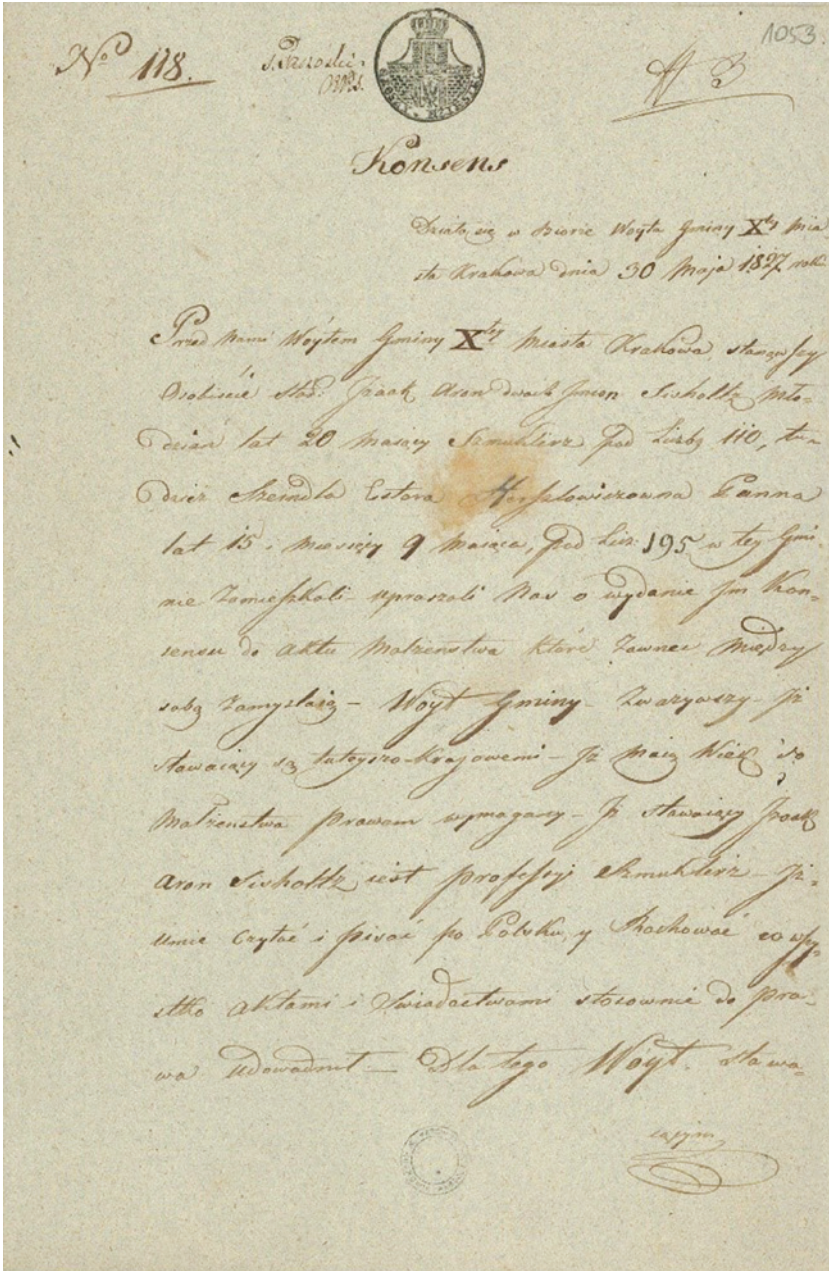 1053.
No 118.
A 3
Konsens
Działo się w Biorze Woyta Gminy Xtey Mia
sta Krakowa dnia 30 Maja 1827 roku
Przed Nami Woytem Gminy Xtey Miasta Krakowa, stanąwszy
Osobiscie Stał: Jzaak Aron dwoch Jmion Sisholtz Mło-
dzian lat 20 maiący Szmuklerz pod Liczbą 110, tu-
dzież Szeindla Estera Herszlowiczowna Panna
lat 15 i Miesięcy 9 maiąca, pod Licz: 195 w tey Gmi
nie Zamieszkali - upraszali Nas o wydanie Jm Kon-
sensu do aktu Małżenstwa które Zawrzec między
sobą zamyslaią - Woyt Gminy - Zwazywszy - Jż
stawaiący są tuteyszo-Krajowemi - Jż maią Wiek do
Małżenstwa prawem wymagany - Jż stawaiący Jzaak
Aron Sisholtz iest professyi Szmuklerz - Jż
umie Czytać i pisać po Polsku, y Rachować co wszy-
stko aktami i Swiadectwami stosownie do pra-
wa udowadnił - Dla tego Woyt. stawa-
iącym